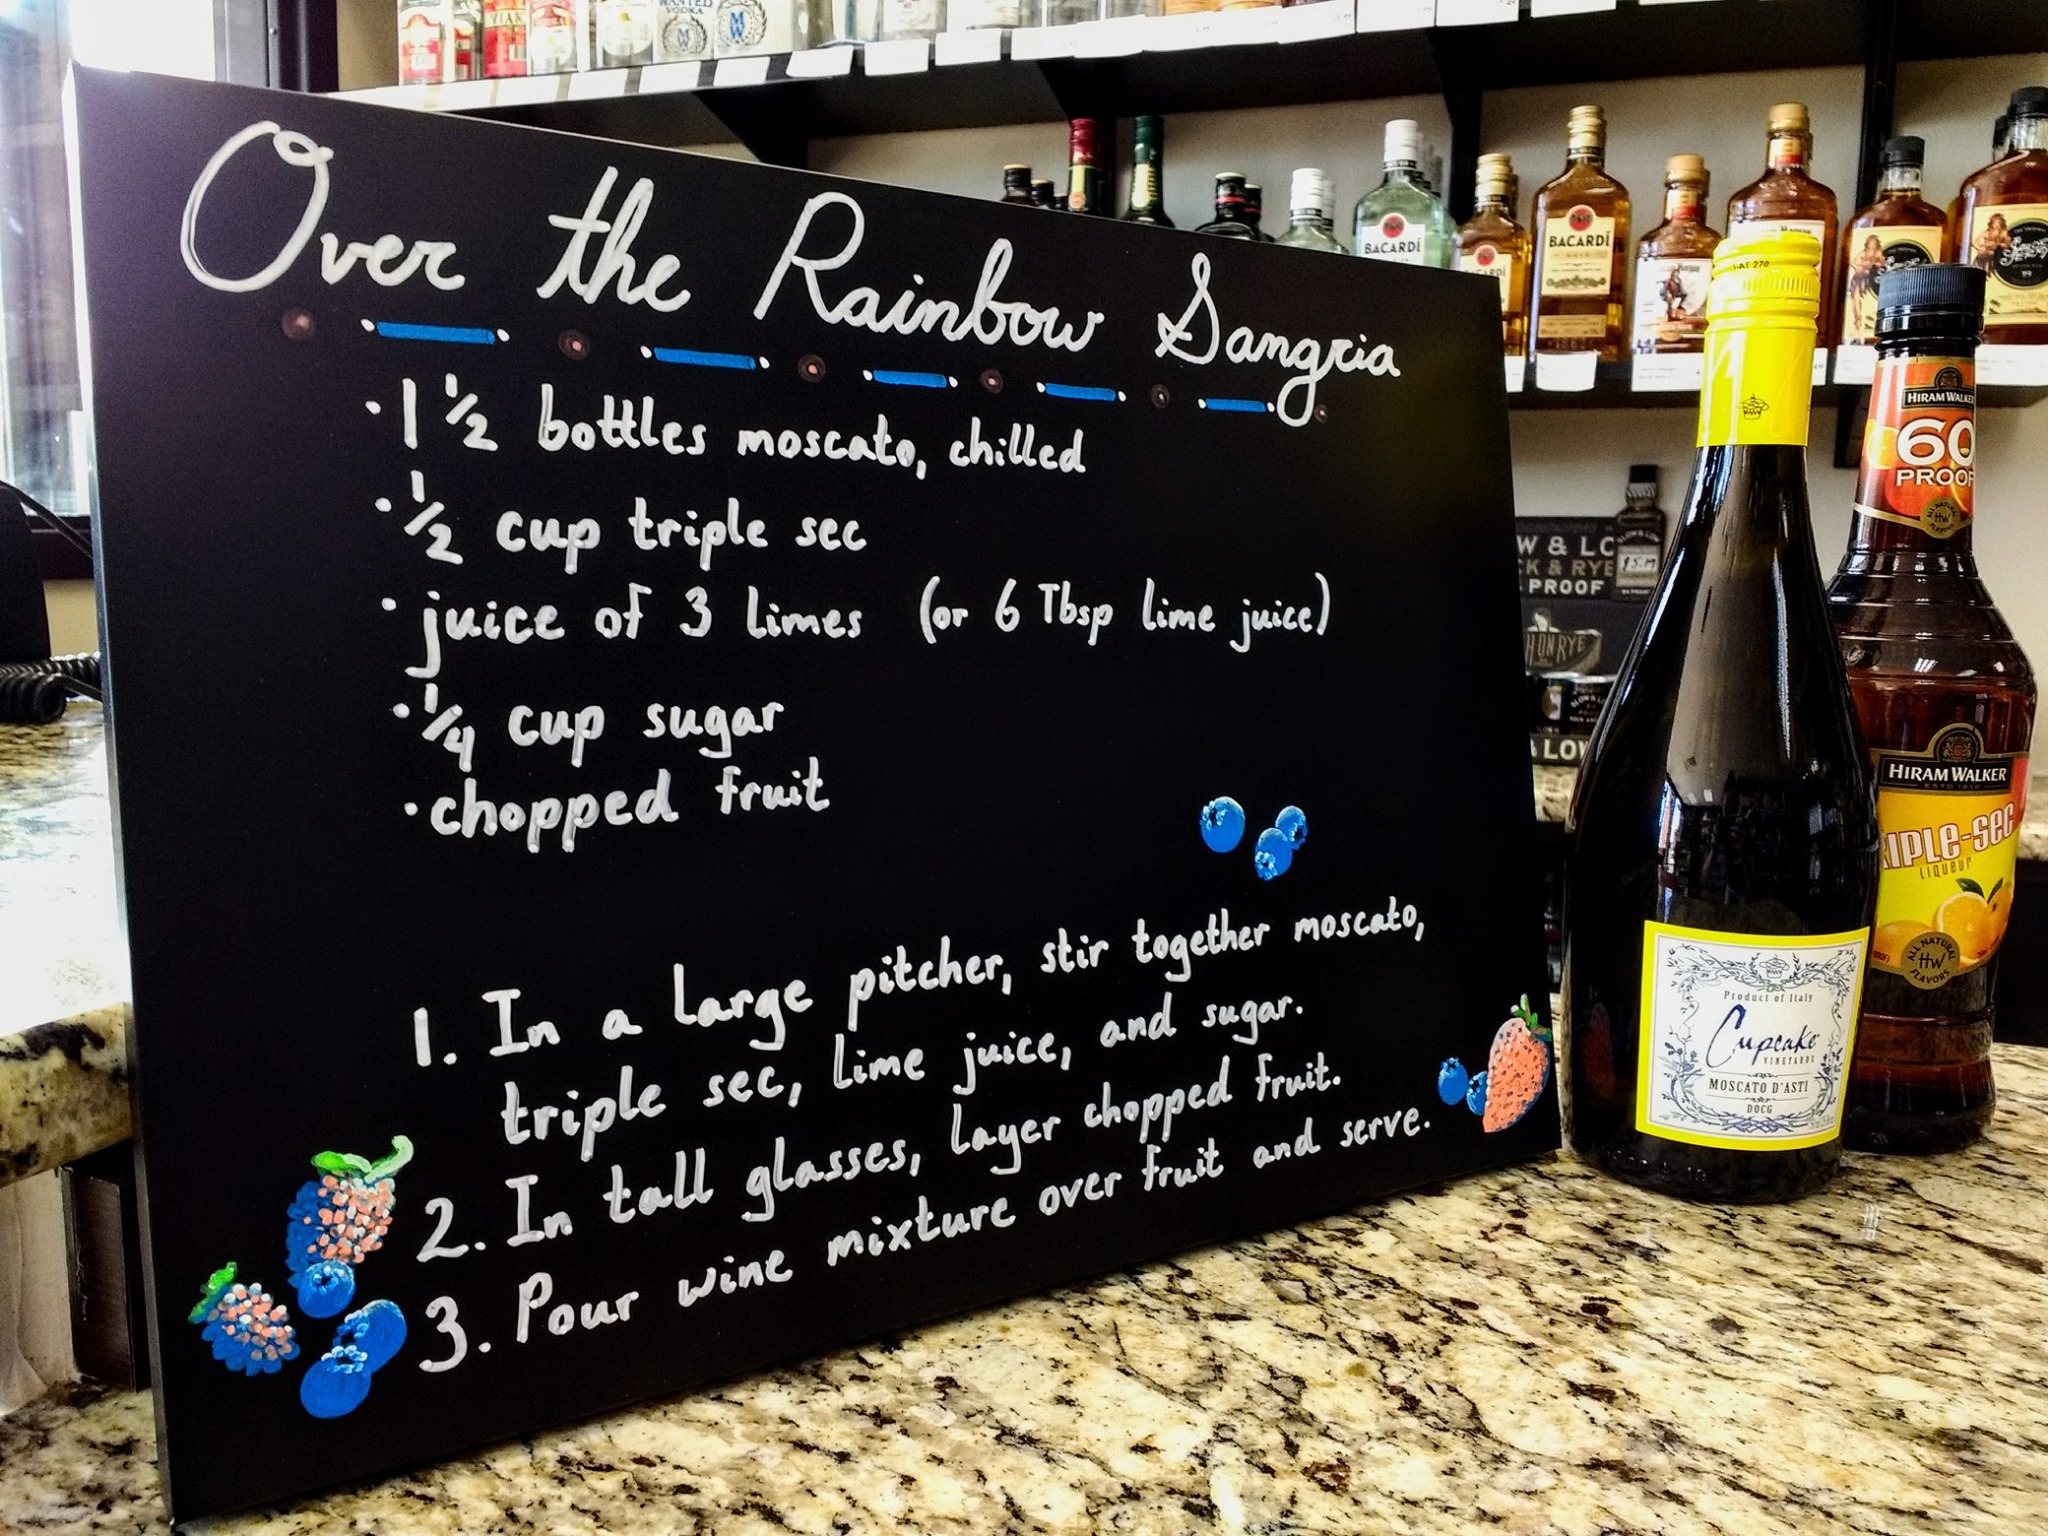 Over the Rainbow Sangria
· 1 1/2 bottles moscato, chilled
· 1/2 cup triple sec
· juice of 3 limes (or 6 Tbsp lime juice)
· 1/4 cup sugar
· chopped fruit
1. In a large pitcher, stir together moscato,
triple sec, lime juice, and sugar.
2. In tall glasses, layer chopped fruit.
3. Pour wine mixture over fruit and serve.
WANTED
VODKA
BACARDÍ
BACARDÍ
HIRAM WALKER
60
PROOF
ALL NATURAL
HW
FLAVORS
HIRAM WALKER
TRIPLE-SEC
LIQUEUR
ALL NATURAL
HW
FLAVORS
Product of Italy
Cupcake
VINEYARDS
MOSCATO D'ASTI
DOCG
W & LO
CK & RYE
PROOF
SLOW & LOW
HON RYE
& LOW